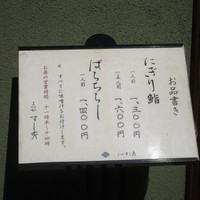 お品書き
にぎり鮨
一人前 一、三〇〇円
一、五人前 一、六〇〇円
ばらちらし
一人前 一、四〇〇円
※ すべてに味噌汁をお付けします。
お昼の営業時間 十一時半〜十四時